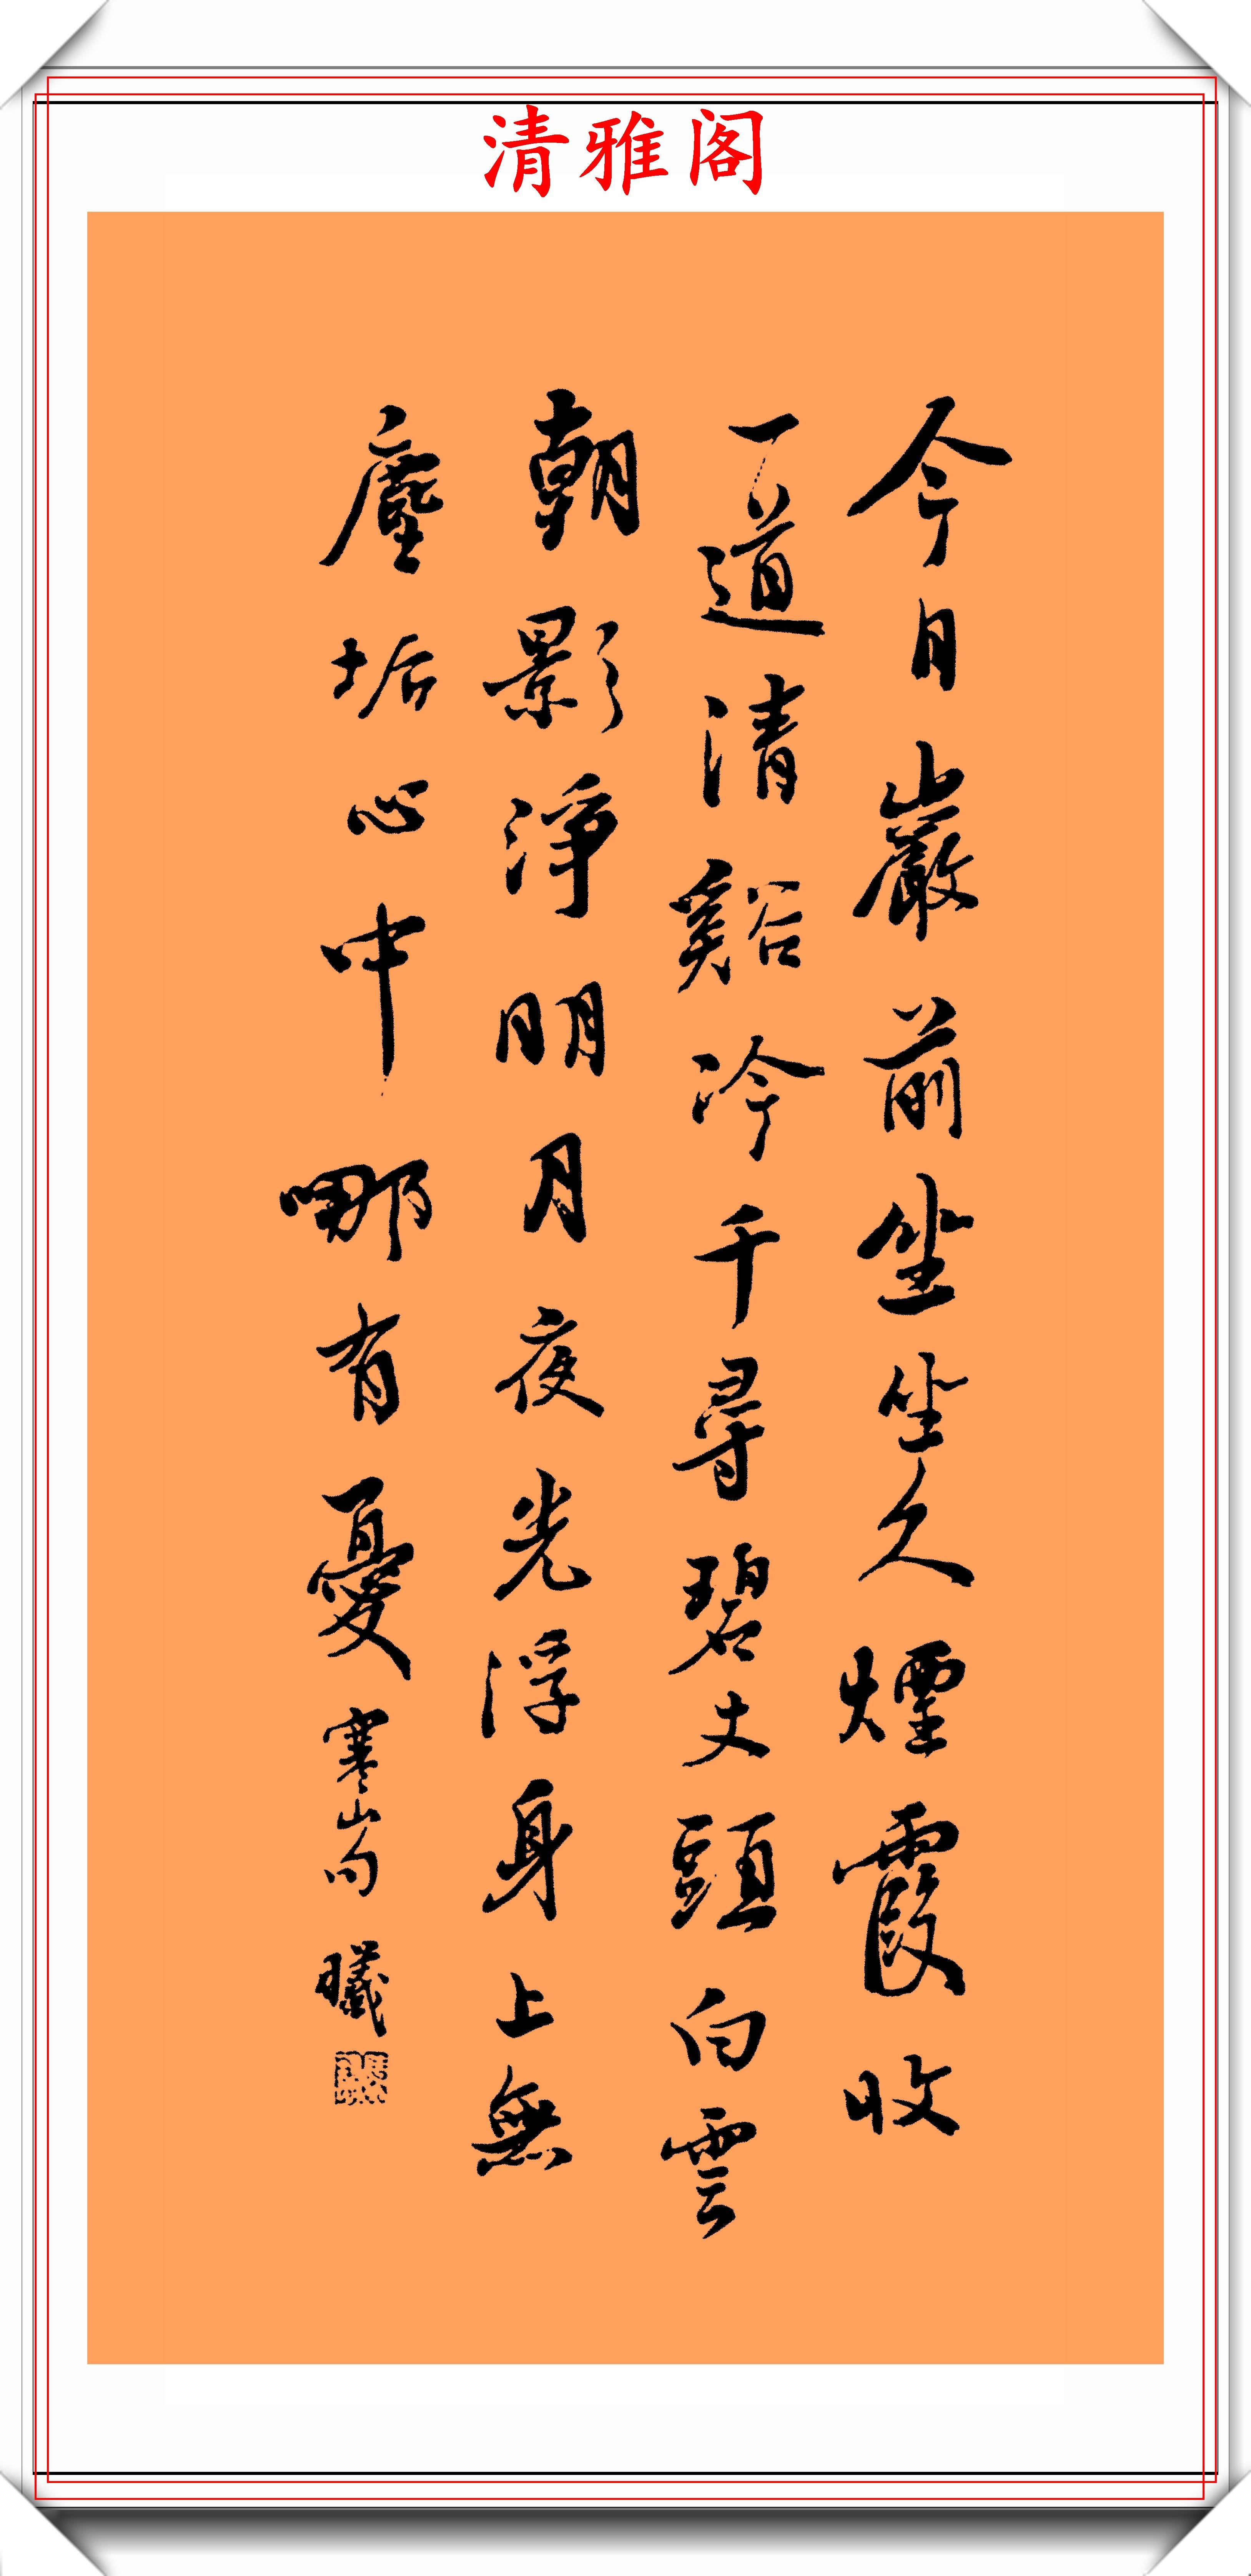 清雅阁
今日巖前坐坐久煙霞收
一道清谿冷千尋碧丈頭白雲
朝影淨明月夜光浮身上無
塵垢心中哪有憂寒山句 曦